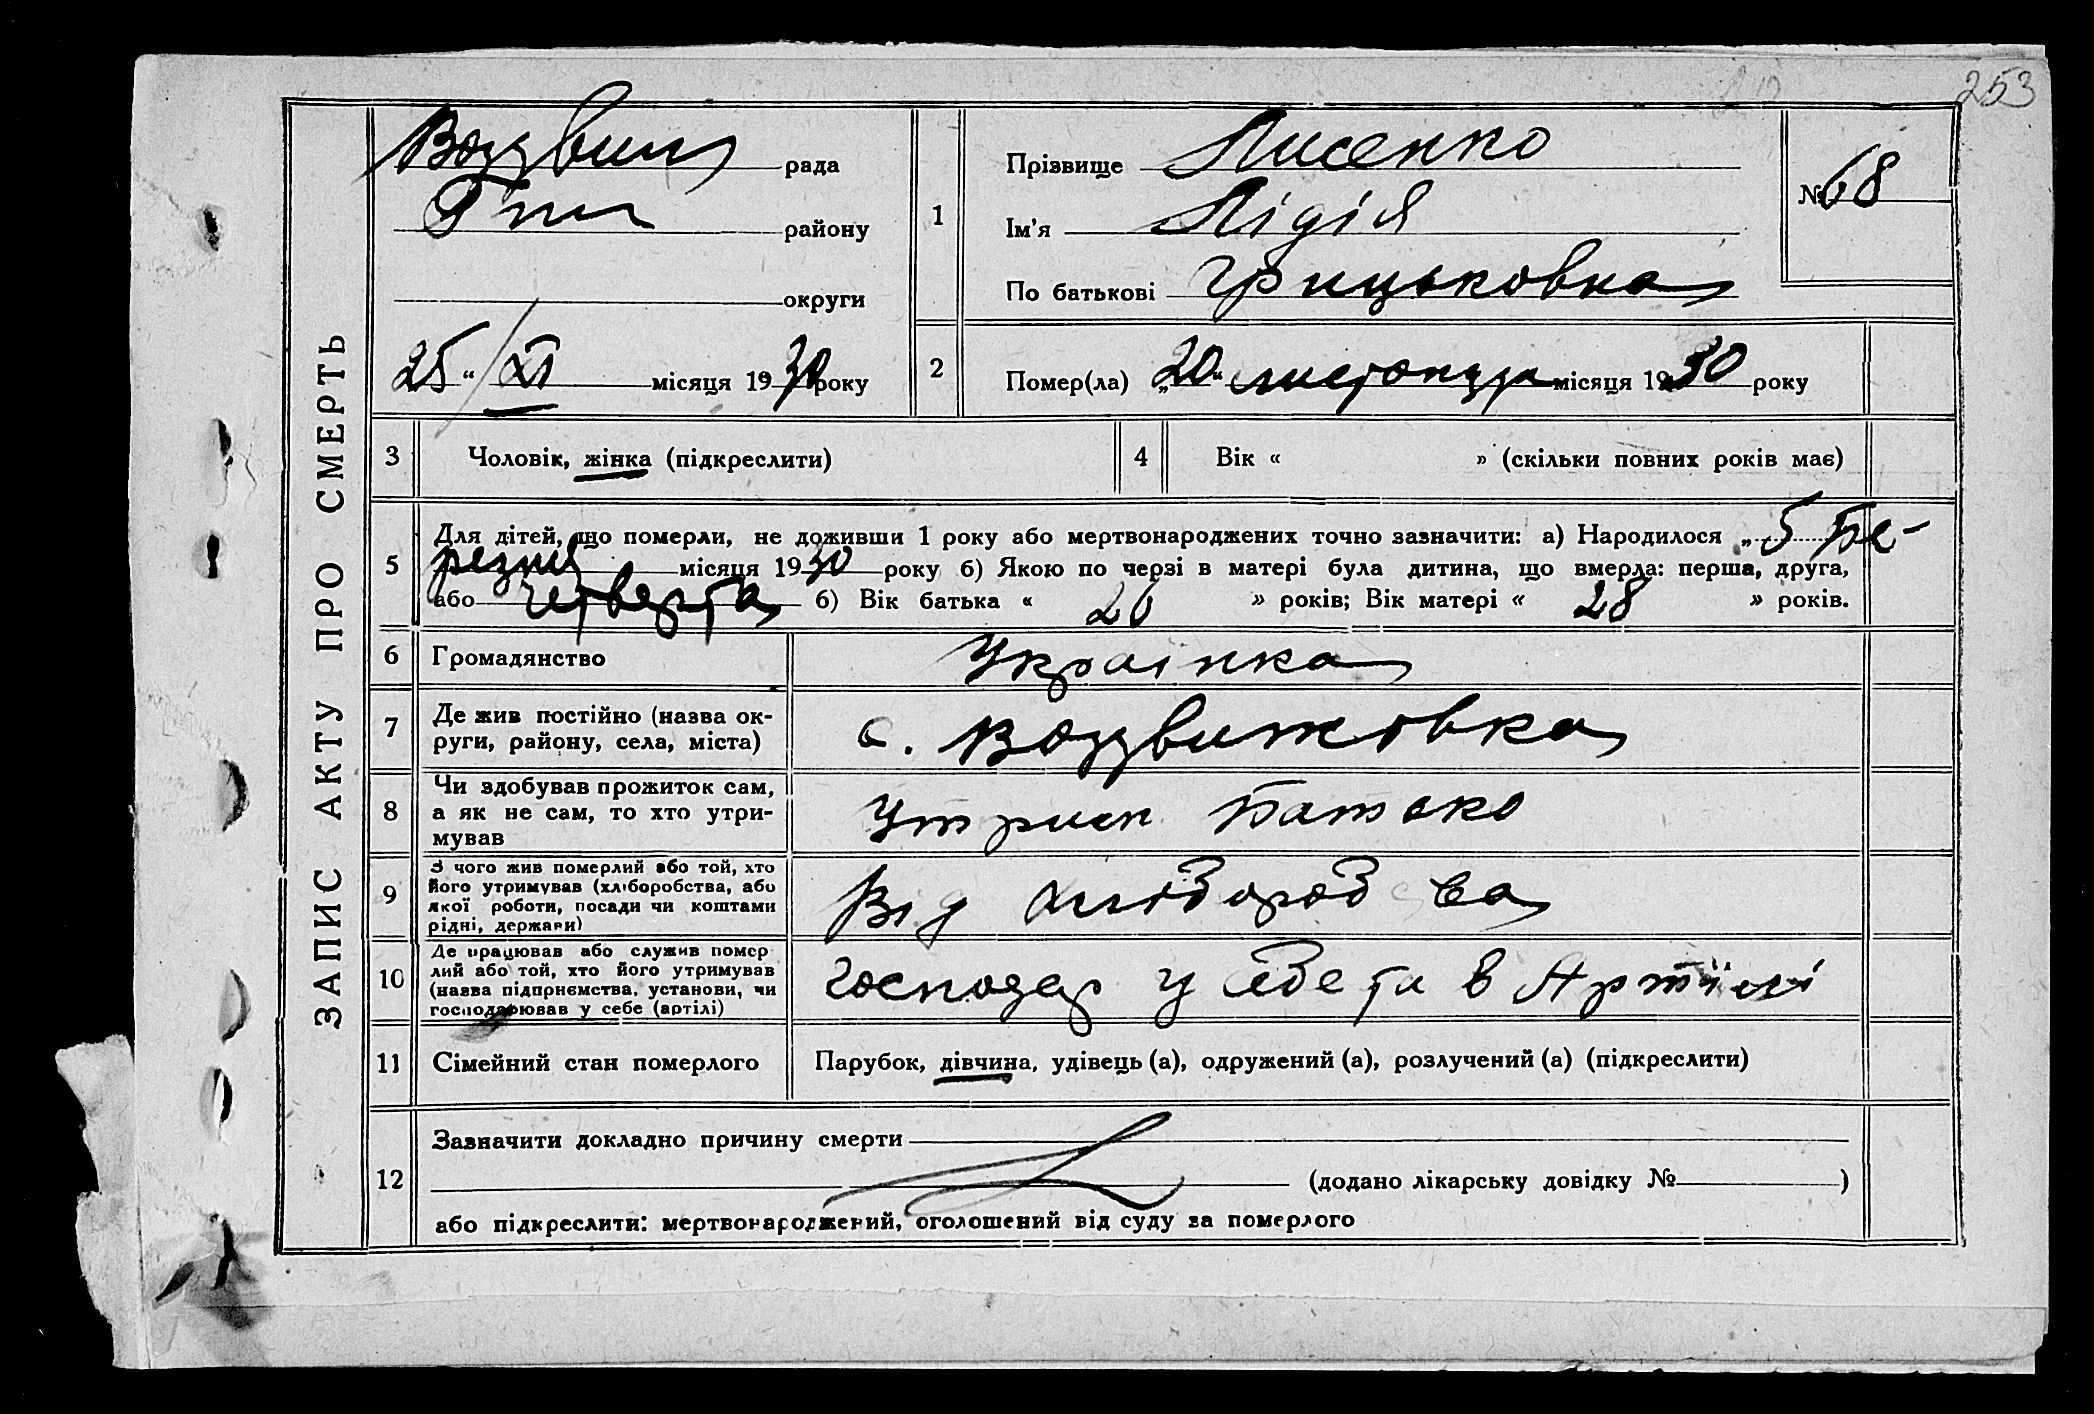 253
ЗАПИС АКТУ ПРО СМЕРТЬ
Воздвиж рада
району
округи
25 “ XI місяця 1930 року
1
Прізвище Лисенко
Ім'я Лідія
По батькові Грицьковна
№ 68
2 Помер(ла) „20“ листопада місяця 1930 року
3 Чоловік, жінка (підкреслити)
4 Вік « » (скільки повних років має)
5 Для дітей, що померли, не доживши 1 року або мертвонароджених точно зазначити: а) Народилося „ 5 Бе-
резня місяця 1930 року б) Якою по черзі в матері була дитина, що вмерла: перша, друга,
або четверта б) Вік батька « 26 » років; Вік матері « 28 » років.
6 Громадянство Українка
7 Де жив постійно (назва ок-
руги, району, села, міста) с. Воздвижовка
8 Чи здобував прожиток сам,
а як не сам, то хто утри-
мував Утрим Батько
9 З чого жив померлий або той, хто
його утримував (хліборобства, або
якої роботи, посади чи коштами
рідні, держави) Від хліборобства
10 Де працював або служив помер
лий або той, хто його утримував
(назва підприємства, установи, чи
господарював у себе (артілі) Господар у себе та в Артілі
11 Сімейний стан померлого Парубок, дівчина, удівець (а), одружений (а), розлучений (а) (підкреслити)
12 Зазначити докладно причину смерти
(додано лікарську довідку № )
або підкреслити: мертвонароджений, оголошений від суду за померлого